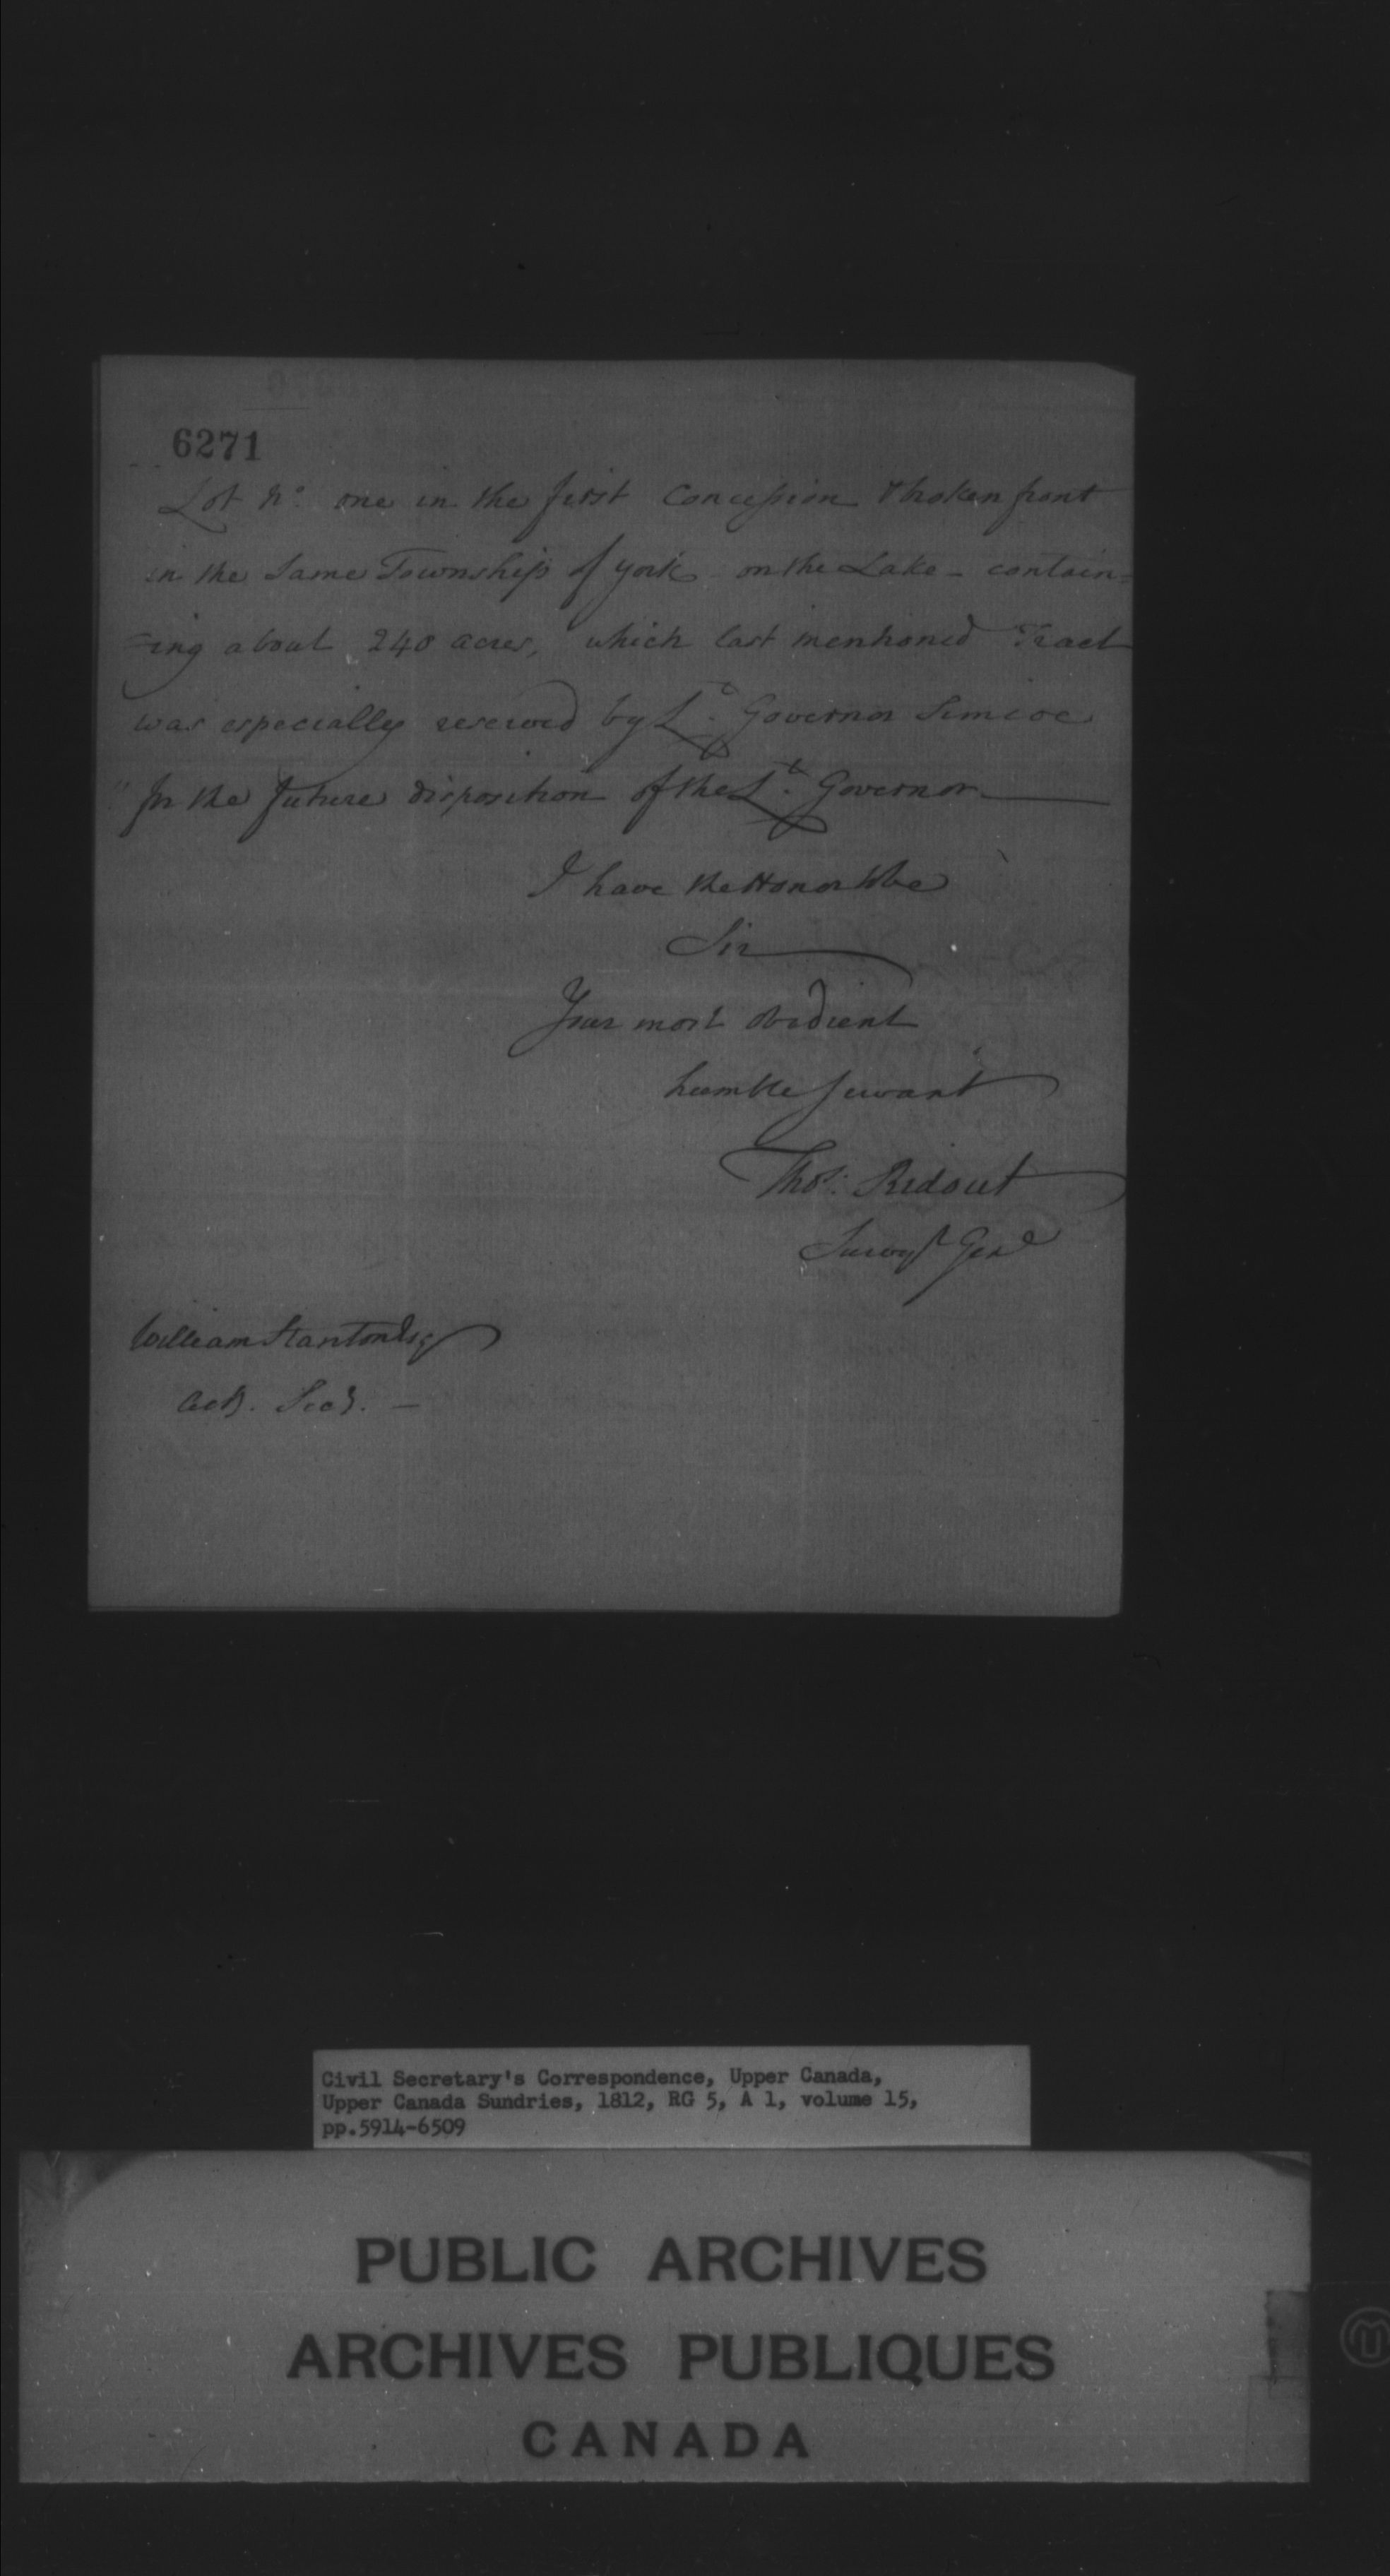 6271
Lot No. one in the first Concession & broken front
in the Same Township of York on the Lake - contain=
=ing about 240 acres, which last mentioned Tract
was especially reserved by Lt. Governor Simcoe
"for the future disposition of the Lt. Governor
I have the Honor to be
Sir
Your most obedient
humble Servant
Thos. Ridout
Survyr Genl
William Stanton Esq
Actg. Secy. -
Civil Secretary's Correspondence, Upper Canada,
Upper Canada Sundries, 1812, RG 5, A 1, volume 15,
pp.5914-6509
PUBLIC ARCHIVES
ARCHIVES PUBLIQUES
CANADA